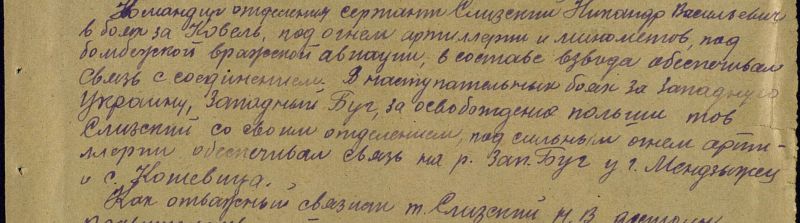 Командир отделения сержант Слизский Никандр Васильевич
в боях за Ковель, под огнем артиллерии и минометов, под
бомбежкой вражеской авиации, в составе взвода обеспечивал
связь с соединением. В наступательных боях за Западную
Украину, Западный Буг, за освобождение польши тов
Слизский со своим отделением, под сильным огнем арти-
ллерии обеспечивал связь на р. Зап. Буг у г. Мендзыжец
и с. Кошевица.
Как отважный связист т. Слизский Н.В.